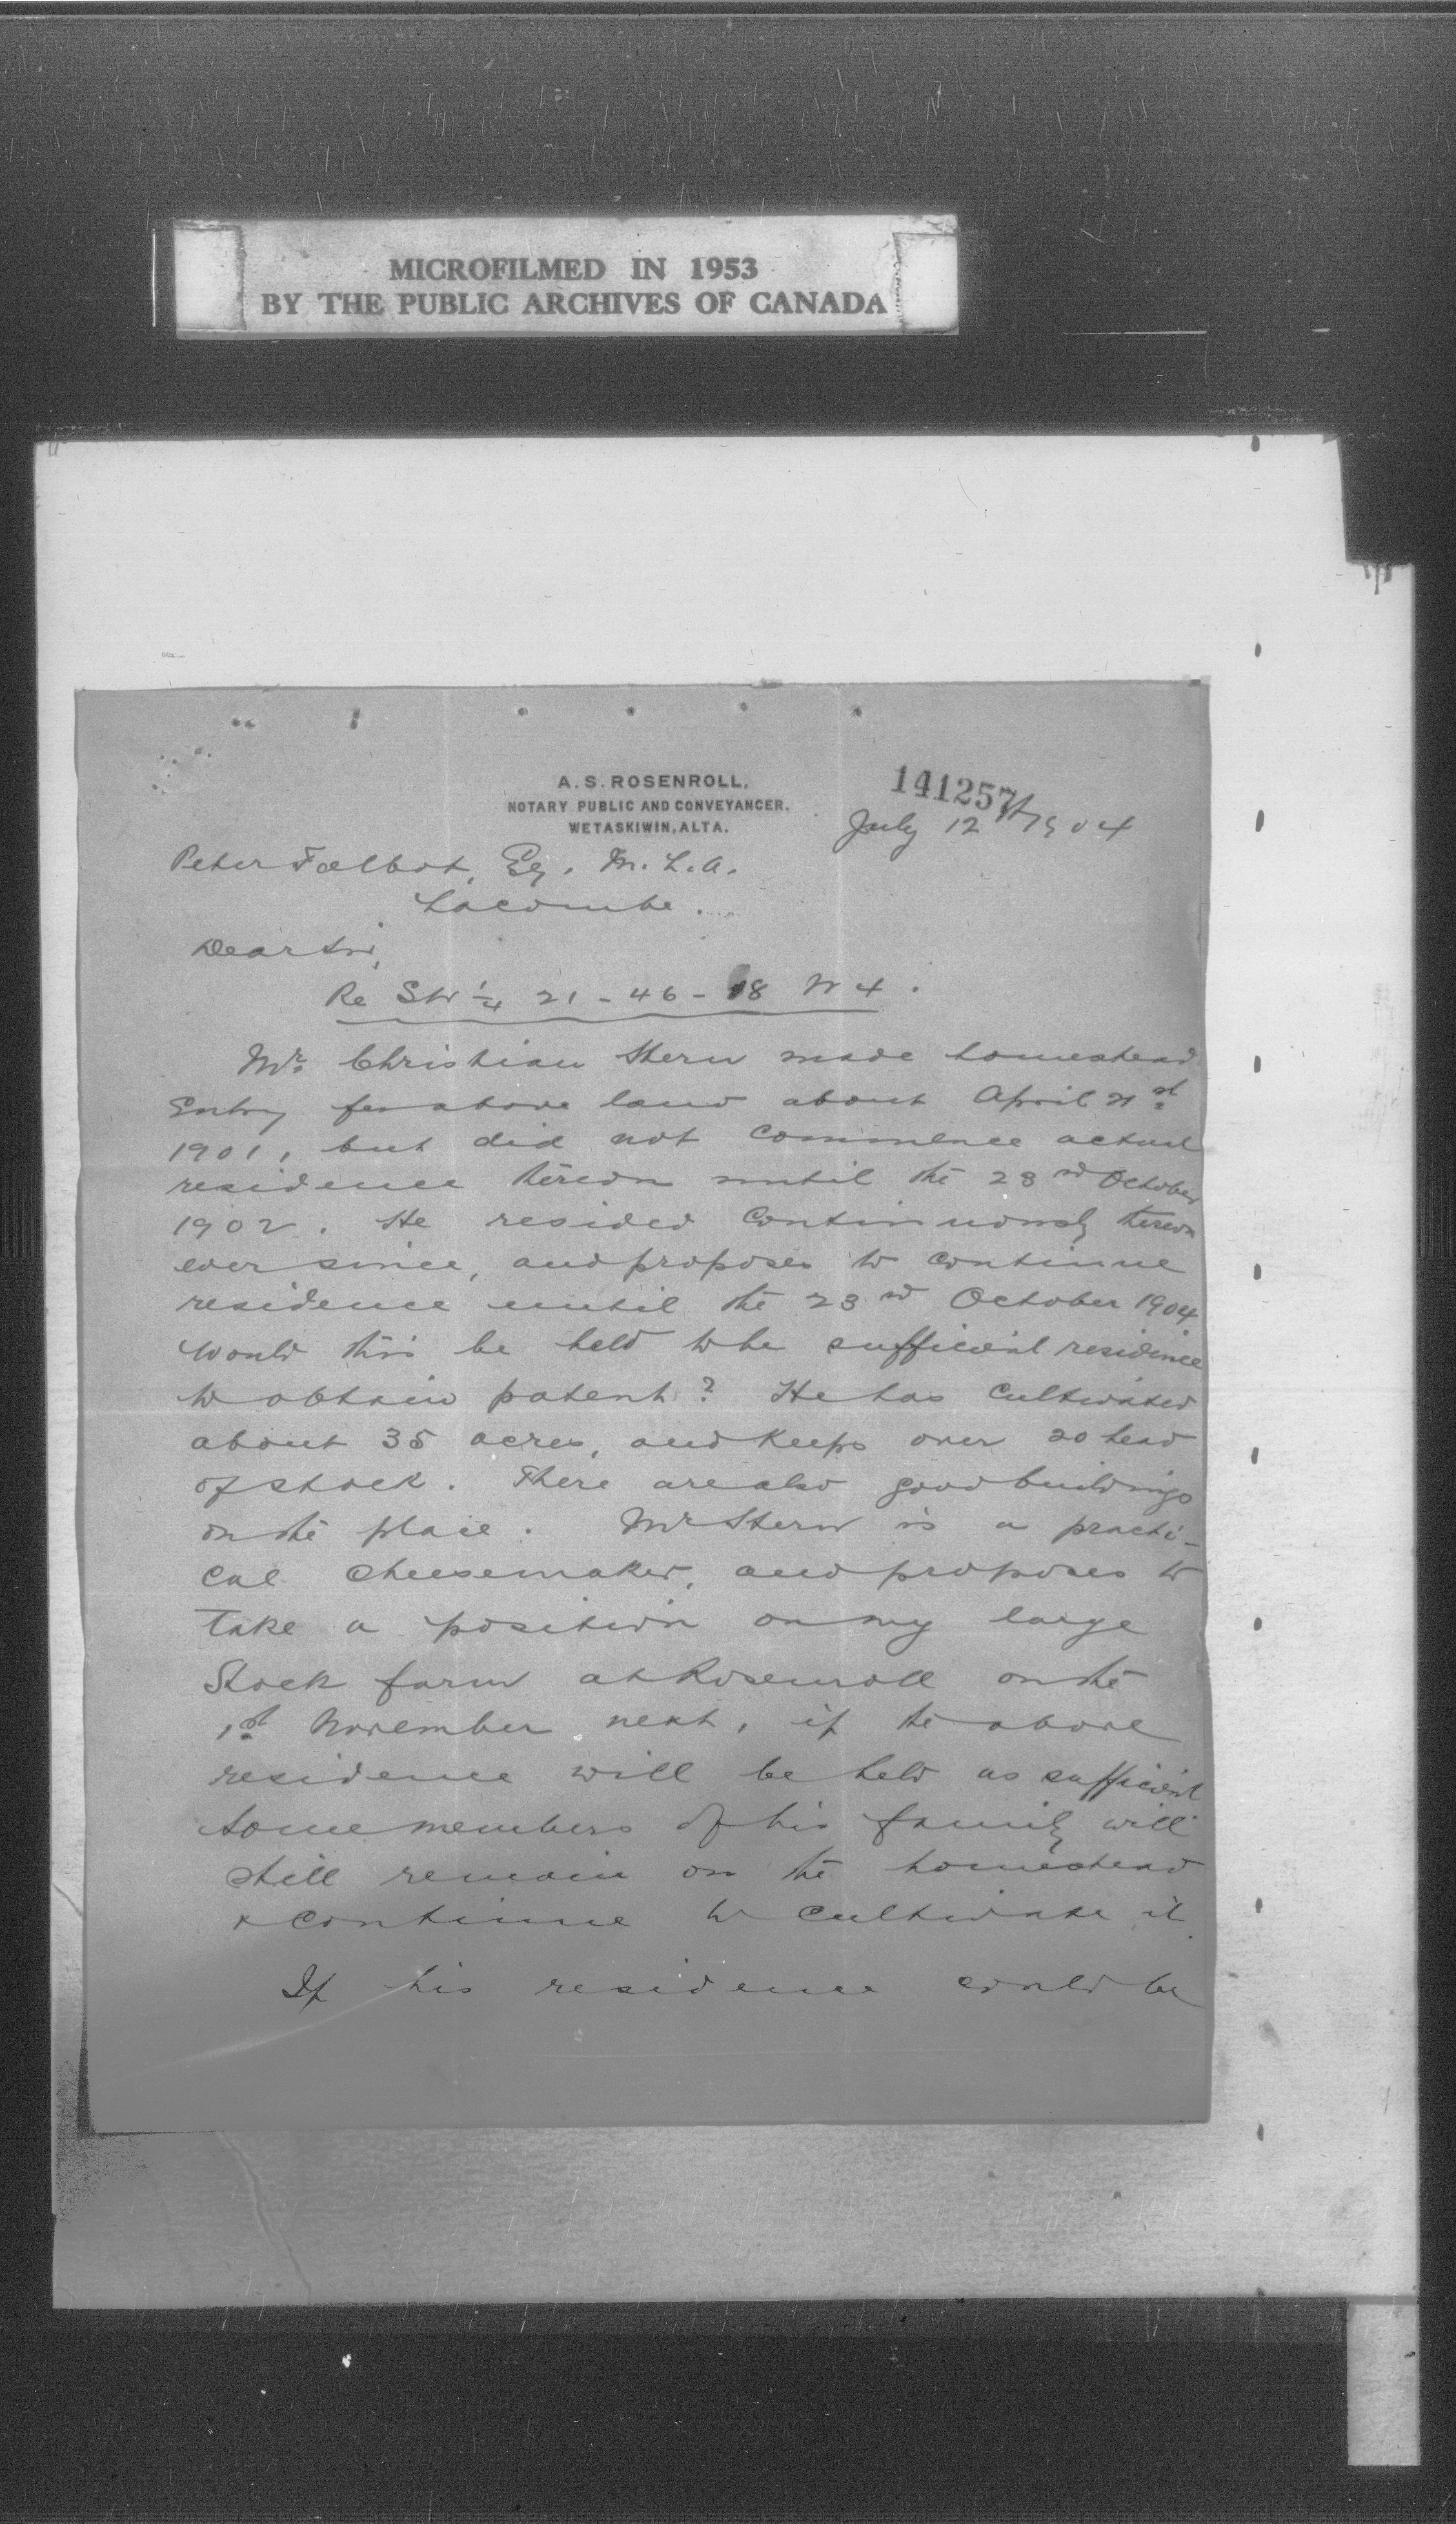 MICROFILMED IN 1953
BY THE PUBLIC ARCHIVES OF CANADA
A. S. ROSENROLL,
NOTARY PUBLIC AND CONVEYANCER.
WETASKIWIN, ALTA.
141257
July 12th 1904
Peter Talbot, Esq. M. L. A.
Lacombe.
Dear Sir,
Re SW 1/4 21 - 46 - 18 W 4.
Mr. Christian Stern made homestead
Entry for above land about April 21st
1901, but did not commence actual
residence thereon until the 23rd October
1902. He resided continuously thereon
ever since, and proposes to continue
residence until the 23rd October 1904
Would this be held to be sufficient residence
to obtain patent? He has cultivated
about 35 acres, and keeps over 20 head
of stock. There are also good buildings
on the place. Mr Stern is a practi-
cal cheesemaker, and proposes to
take a position on my large
Stock farm at Rosenroll on the
1st November next, if the above
residence will be held as sufficient
Some members of his family will
still remain on the homestead
& continue to cultivate it.
If his residence could be